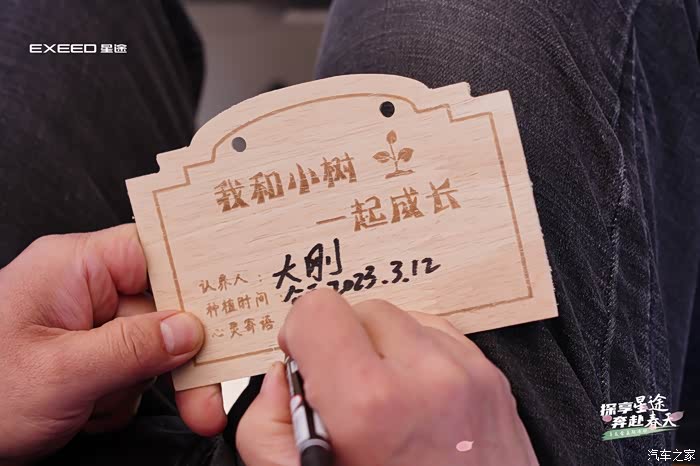 EXEED 星途
我和小树
一起成长
认养人：大刚
种植时间：2023.3.12
心灵寄语
探享星途
奔赴春天
汽车之家